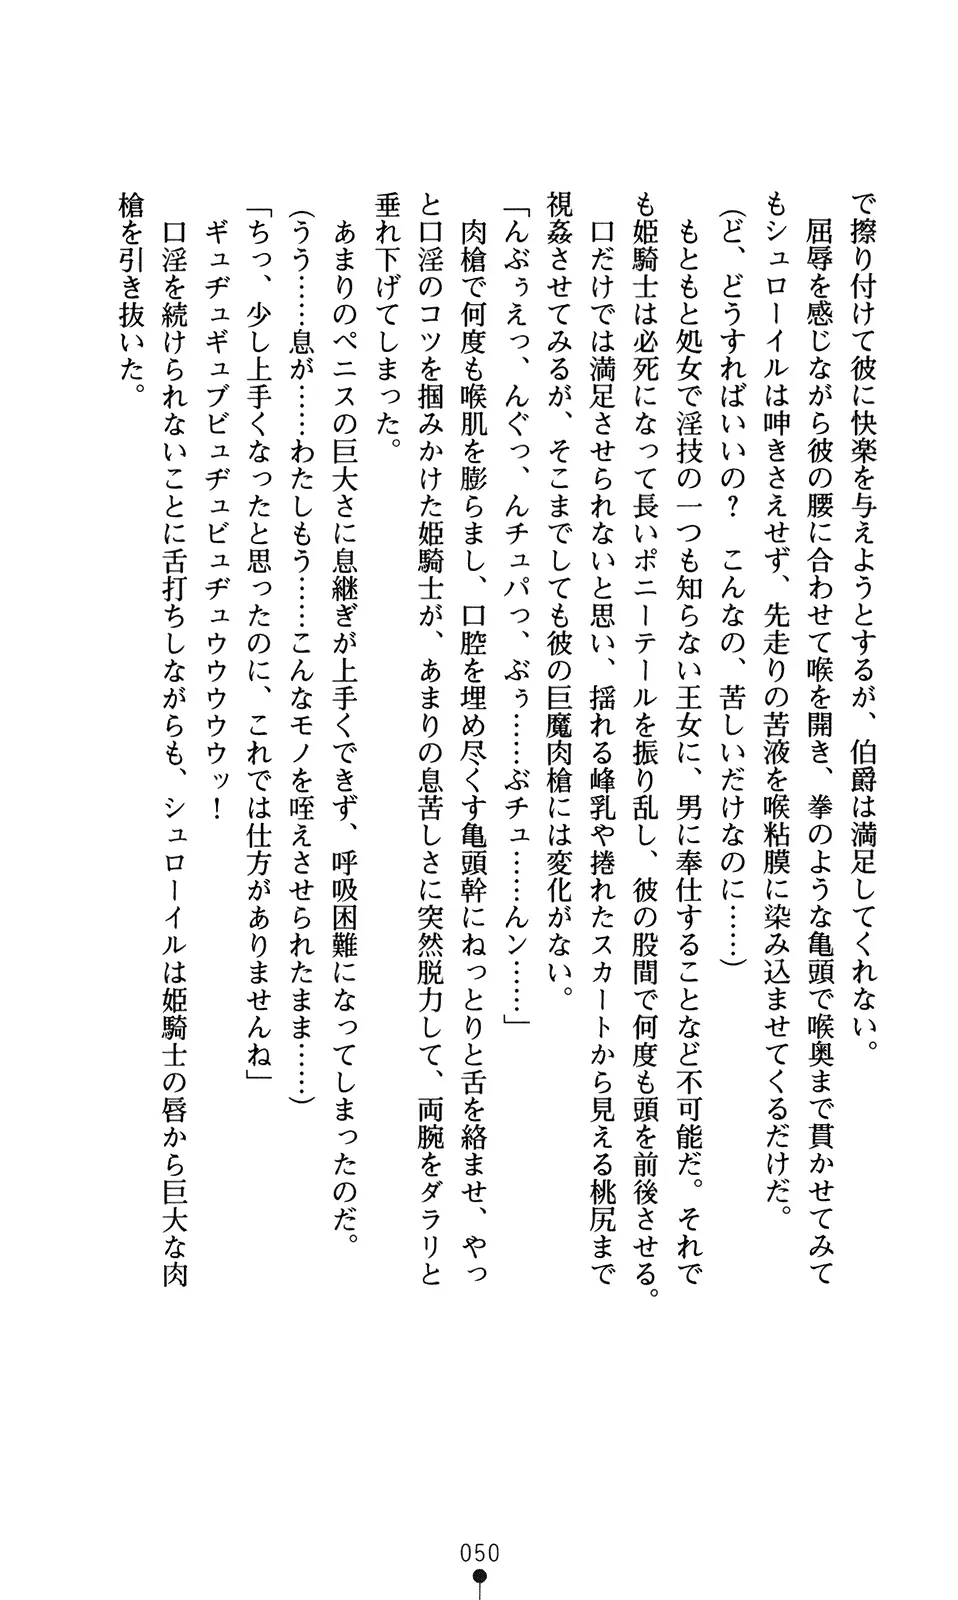 で擦り付けて彼に快楽を与えようとするが、伯爵は満足してくれない。
屈辱を感じながら彼の腰に合わせて喉を開き、拳のような亀頭で喉奥まで貫かせてみて
もシュローイルは呻きさえせず、先走りの苦液を喉粘膜に染み込ませてくるだけだ。
(ど、どうすればいいの？　こんなの、苦しいだけなのに……)
もともと処女で淫技の一つも知らない王女に、男に奉仕することなど不可能だ。それで
も姫騎士は必死になって長いポニーテールを振り乱し、彼の股間で何度も頭を前後させる。
口だけでは満足させられないと思い、揺れる峰乳や捲れたスカートから見える桃尻まで
視姦させてみるが、そこまでしても彼の巨魔肉槍には変化がない。
「んぶぅえっ、んぐっ、んチュパっ、ぶぅ……ぶチュ……んン……」
肉槍で何度も喉肌を膨らまし、口腔を埋め尽くす亀頭幹にねっとりと舌を絡ませ、やっ
と口淫のコツを掴みかけた姫騎士が、あまりの息苦しさに突然脱力して、両腕をダラリと
垂れ下げてしまった。
あまりのペニスの巨大さに息継ぎが上手くできず、呼吸困難になってしまったのだ。
(うう……息が……わたしもう……こんなモノを咥えさせられたまま……)
「ちっ、少し上手くなったと思ったのに、これでは仕方がありませんね」
ギュヂュギュブビュヂュビュヂュウウウウウッ！
口淫を続けられないことに舌打ちしながらも、シュローイルは姫騎士の唇から巨大な肉
槍を引き抜いた。
050